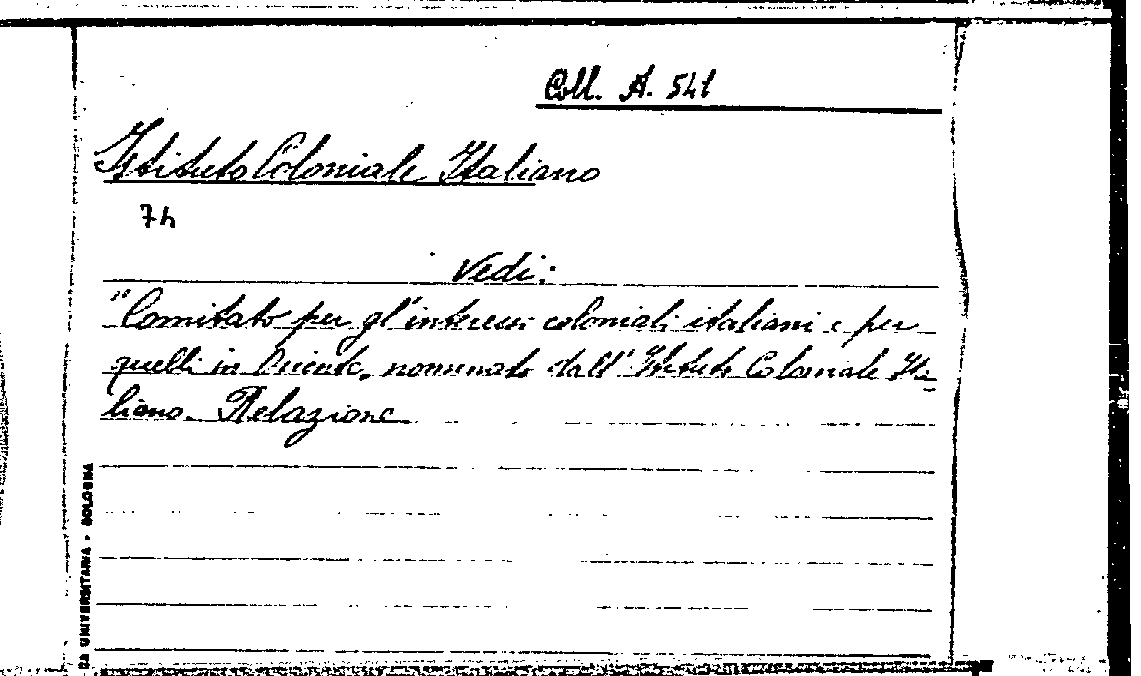 Coll. A. 541
Istituto Coloniale Italiano
74
Vedi:
"Comitato per gl'interessi coloniali italiani e per
quelli in Oriente, nominato dall'Istituto Coloniale Ita=
liano. Relazione
CA UNIVERSITARIA - BOLOGNA